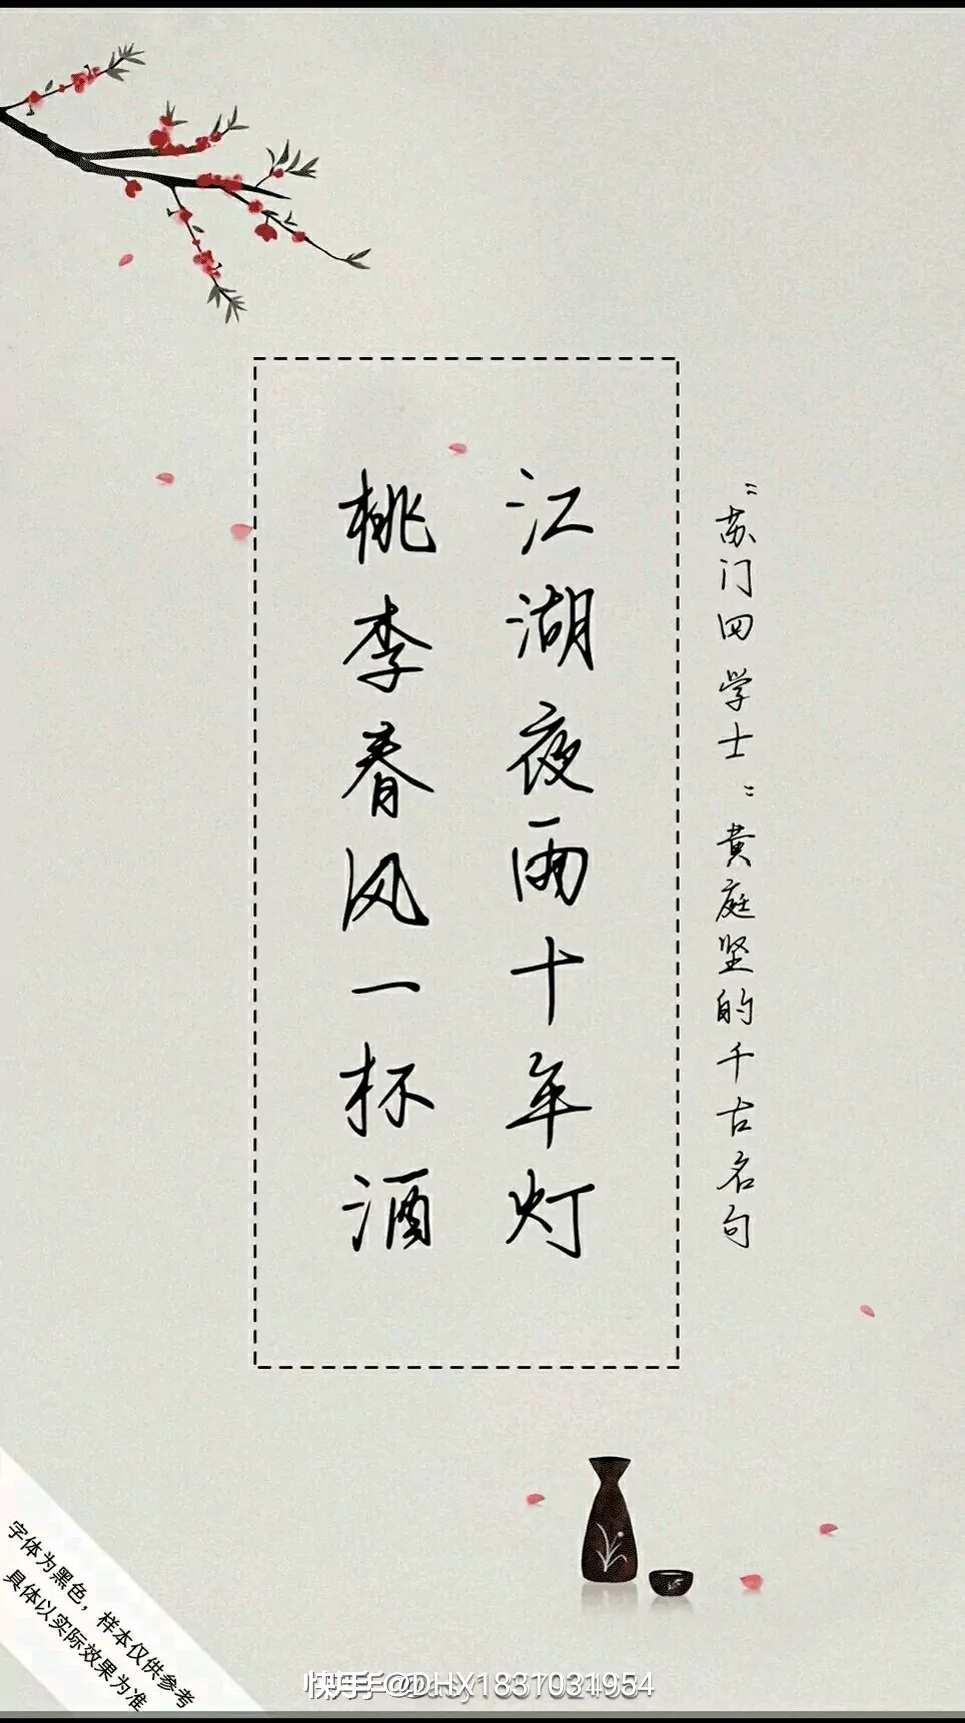 “苏门四学士”黄庭坚的千古名句
江湖夜雨十年灯
桃李春风一杯酒
字体为黑色，样本仅供参考
具体以实际效果为准
快手@DHX1831031954